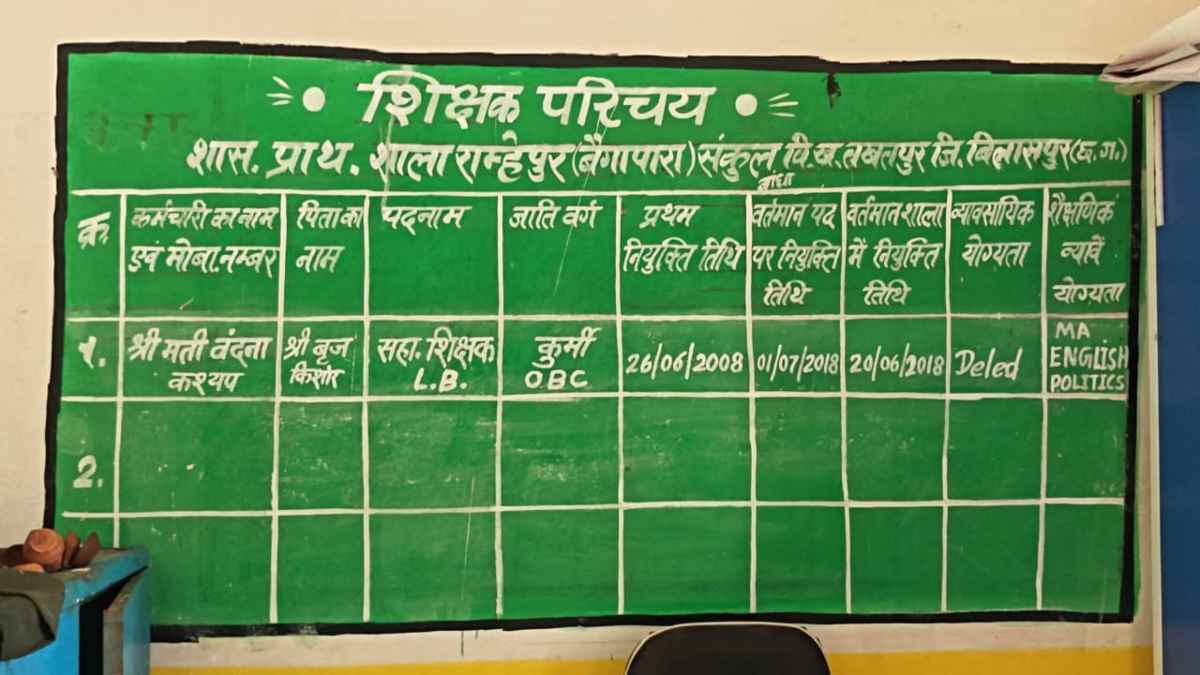 शिक्षक परिचय
शास. प्राथ. शाला राम्हेपुर (बैगापारा) संकुल बांधा वि.ख. तखतपुर जि. बिलासपुर (छ.ग.)
क्र. कर्मचारी का नाम एवं मोबा. नम्बर पिता का नाम पदनाम जाति वर्ग प्रथम नियुक्ति तिथि वर्तमान पद पर नियुक्ति तिथि वर्तमान शाला में नियुक्ति तिथि व्यावसायिक योग्यता शैक्षणिक व्यावें योग्यता
१. श्री मती वंदना कश्यप श्री बृज किशोर सहा. शिक्षक L.B. कुर्मी OBC 26/06/2008 01/07/2018 20/06/2018 Deled MA ENGLISH POLITICS
2.